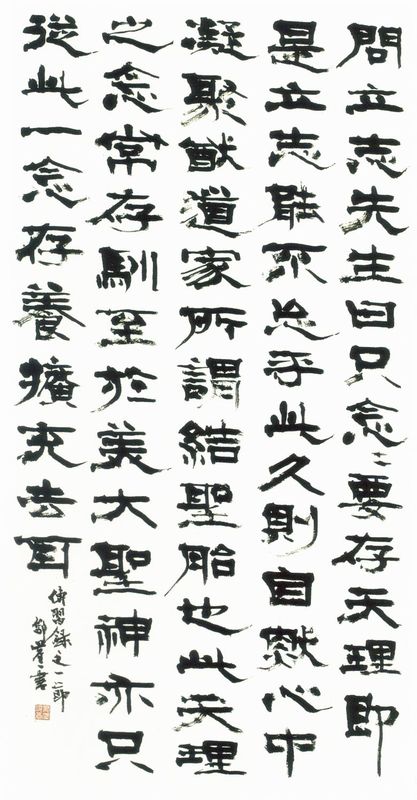 問立志先生曰只念〻要存天理即
是立志能不忘乎此久則自然心中
凝聚猶道家所謂結聖胎也此天理
之念常存馴至於美大聖神亦只
從此一念存養擴充去耳
傳習錄之一節
書